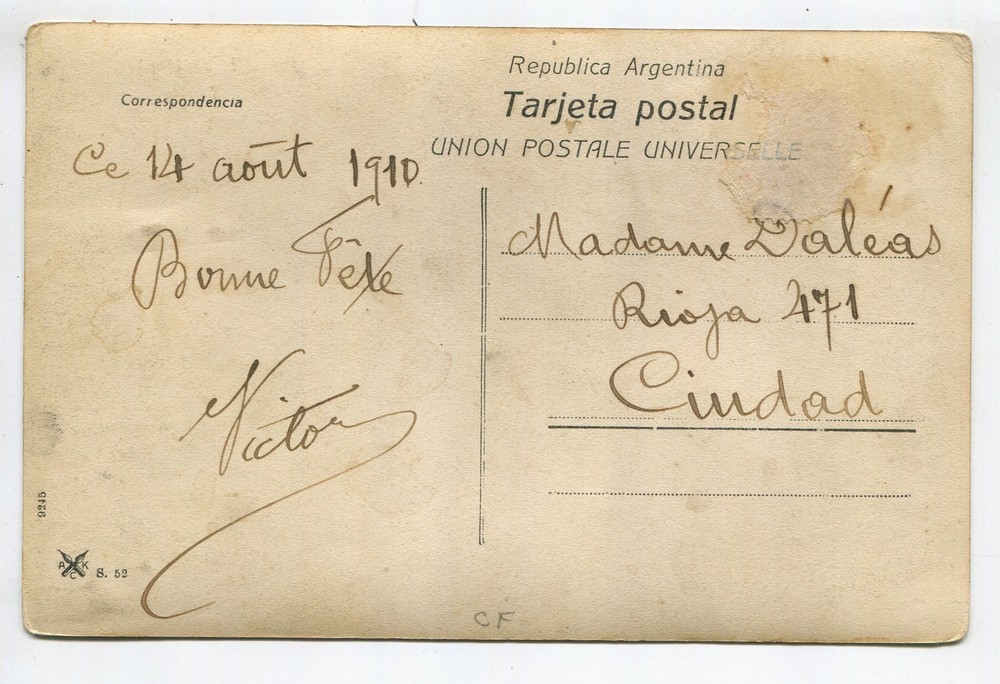 Republica Argentina
Tarjeta postal
UNION POSTALE UNIVERSELLE
Correspondencia
Ce 14 août 1910.
Bonne Fête
Victor
Madame Daléas
Rioja 471
Ciudad
9245
A K
C
S. 52
CF